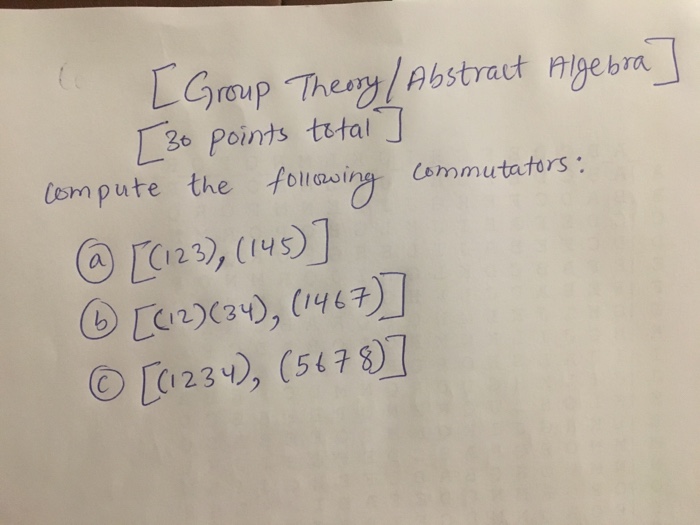 [Group Theory/Abstract Algebra]
[30 points total]
Compute the following commutators:
(a) [(123), (145)]
(b) [(12)(34), (1467)]
(c) [(1234), (5678)]